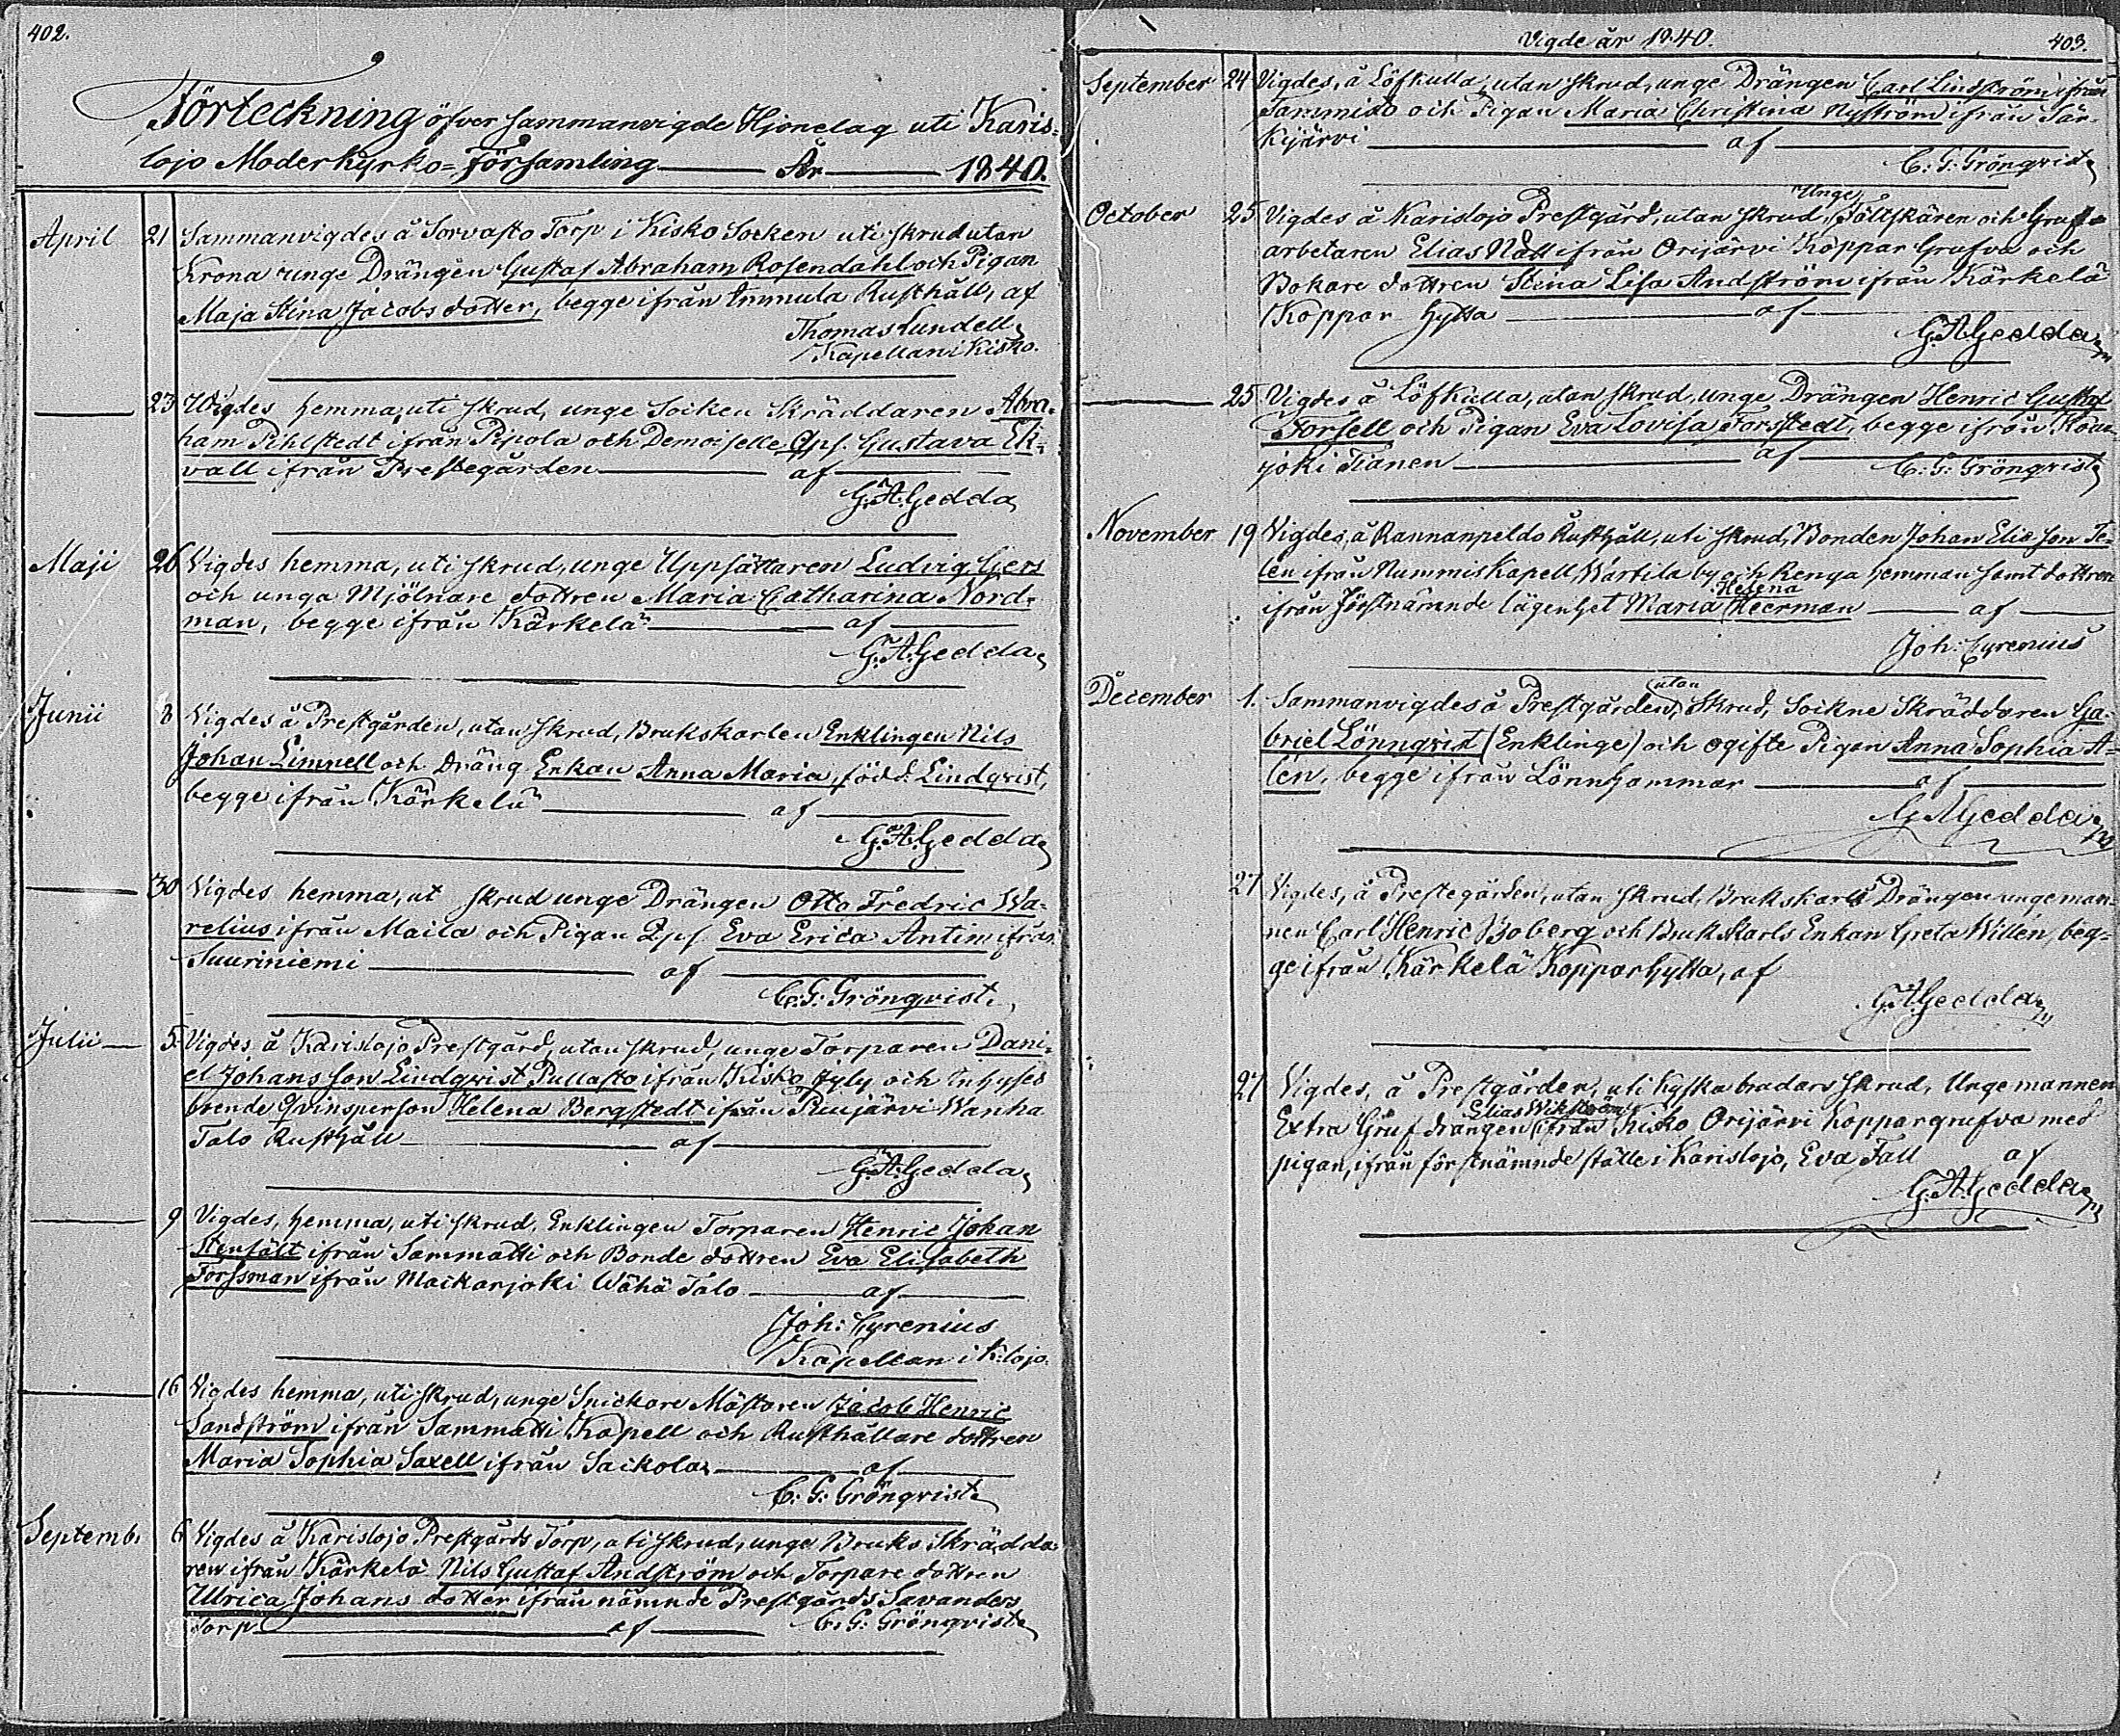 402.
Förteckning öfver Sammanvigde Hjonelag uti Karis=
lojo Moderkyrko=Församling År 1840.
April 21 Sammanvigdes å Sorvasto Torp i Kisko Socken uti skrud utan
Krona unge Drängen Gustaf Abraham Rosendahl och Pigan
Maja Stina Jacobs dotter, begge ifrån Immula Rusthåll, af
Thomas Lundell
Kapellan i Kisko.
23 Wigdes hemma, uti skrud, unge Socken Skräddaren Abra=
ham Pihlstedt ifrån Pipola och Demoiselle Gustava Ek=
vall ifrån Prestegården af
G. A. Gedda
Maji 26 Vigdes hemma, uti skrud, unge Uppsättaren Ludvig Gers
och unga Mjölnare dottren Maria Catharina Nord=
man, begge ifrån Kärkelä af
G. A. Gedda
Junii 8 Vigdes å Prestgården, utan skrud, Brukskarlen Enklingen Nils
Johan Limnell och Dräng Enkan Anna Maria, född Lindqvist,
begge ifrån Kärkelä af
G. A. Gedda
30 Vigdes hemma, ut skrud unge Drängen Otto Fredric Wa=
relius ifrån Maila och Pigan Eva Erica Antin ifrån
Suuriniemi af
C: G: Grönqvist
Julii 5. Vigdes å Karislojo Prestgård, utan skrud, unge Torparen Dani=
el Johansson Lindqvist Pullasto ifrån Kisko Jyly och Inhyses
boende Qvinsperson Helena Bergstedt ifrån Puujärvi Wanha
Talo Rusthåll af
G. A. Gedda
9 Vigdes, hemma, uti skrud, Enklingen Torparen Henric Johan
Stenfält ifrån Sammatti och Bonde dottren Eva Elisabeth
Forssman ifrån Mackarjoki Wähä Talo af
Joh: Cyrenius
Kapellan i K:lojo.
16 Vigdes hemma, uti skrud, unge Snickare Mästaren Jacob Henric
Sandström ifrån Sammatti Kapell och Rusthållare dottren
Maria Sophia Saxell ifrån Sackola af
C: G: Grönqvist
Septemb. 6 Vigdes å Karislojo Prestgårds Torp, uti skrud, unge Bruks Skrädda=
ren ifrån Kärkelä Nils Gustaf Andström och Torpare dottren
Ulrica Johans dotter ifrån nämnde Prestgårds Savanders
Torp af C: G: Grönqvist
Vigde år 1840. 403.
September 24 Vigdes, å Löfkulla, utan skrud, unge Drängen Carl Lindström ifrån
Tammisto och Pigan Maria Christina Nyström ifrån Sär=
kijärvi af
C: G: Grönqvist
October 25 Vigdes å Karislojo Prestgård, utan skrud, Unge Fältskären och Gruf=
arbetaren Elias Nätt ifrån Orijärvi Koppar Grufva och
Bokare dottren Stina Lisa Andström ifrån Kärkelä
Koppar Hytta af
G. A. Gedda
25 Vigdes å Löfkulla, utan skrud, unge Drängen Henric Gustaf
Forsell och Pigan Eva Lovisa Forstedt, begge ifrån
joki af
C: G: Grönqvist
November 19 Vigdes, å Rannanpeldo Rusthåll, uti skrud, Bonden Johan Elisson Te=
len ifrån Nummis Kapell Wartila by och Renga hemman samt dottren
ifrån förstnämnde lägenhet Maria Helena Heerman af
Joh: Cyrenius
December 1. Sammanvigdes å Prestgården, utan Skrud, Sockne Skräddaren Ga=
briel Lönnqvist (Enklinge) och ogifte Pigan Anna Sophia A=
len, begge ifrån Lönnhammar af
G A Gedda
27 Vigdes, å Prestegården, utan skrud, Brukskarls Drängen ungeman=
nen Carl Henric Boberg och Brukskarls Enkan Greta Willén, beg=
ge ifrån Kärkelä Kopparhytta, af
G. A. Gedda
27 Vigdes, å Prestgården, uti kyska brudars skrud, Unge mannen
Extra Grufdrängen Elias Wikström ifrån Kisko Orijärvi Koppargrufva med
pigan, ifrån förstnämnde ställe i Karislojo, Eva Fall af
G. A. Gedda